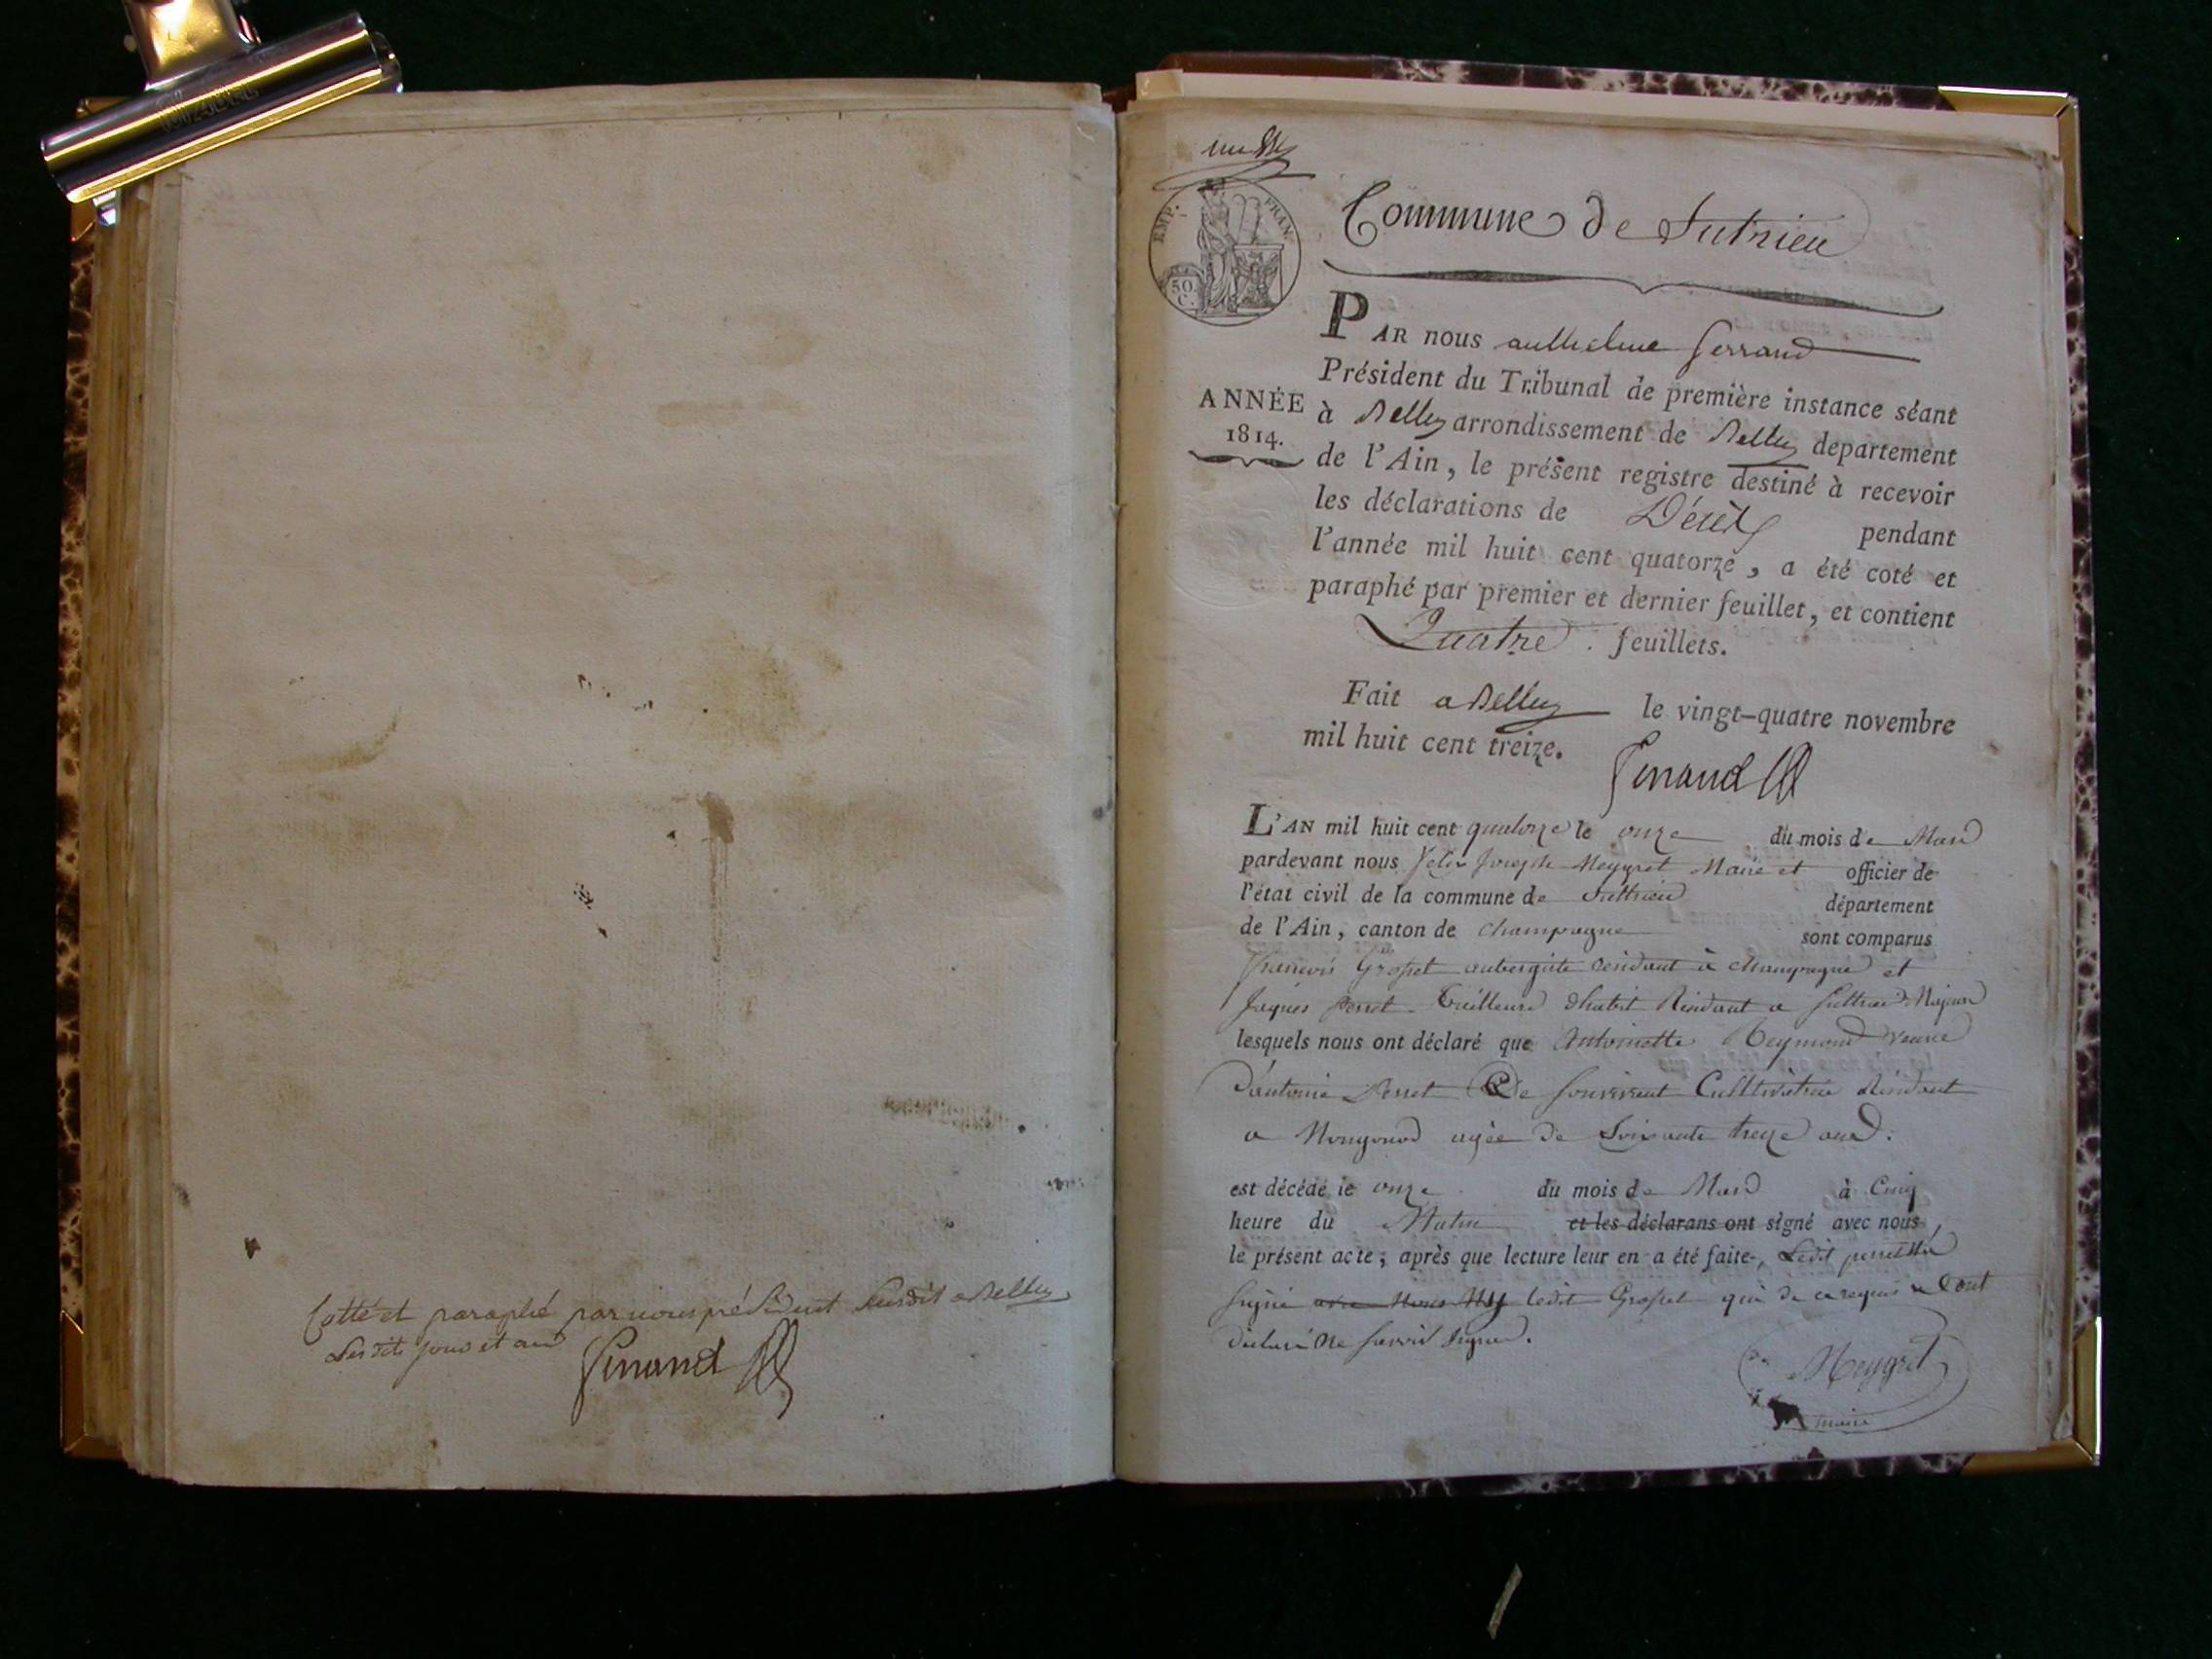 Cotté et paraphé par nous président susdit a Belley
lesdits jour et an
Ferrand
EMP. FRAN.
50.
C.
Commune de Sutrieu
PAR nous anthelme ferrand
Président du Tribunal de première instance séant
ANNÉE
1814.
à Belley arrondissement de Belley departement
de l'Ain, le présent registre destiné à recevoir
les déclarations de Décès pendant
l'année mil huit cent quatorze, a été coté et
paraphé par premier et dernier feuillet, et contient
Quatre feuillets.
Fait a Belley le vingt-quatre novembre
mil huit cent treize.
Ferrand
L'AN mil huit cent quatorze le onze du mois de Mars
pardevant nous felix Joseph Meygret Maire et officier de
l'état civil de la commune de Suttrieu département
de l'Ain, canton de Champagne sont comparus
francois Grosset aubergiste Residant à Champagne et
Jaques perret Tailleur dhabit Résidant a Suttrieu Majeurs
lesquels nous ont déclaré que Antoinette Reymond veuve
d'antoine Perret De Cultivatrice Résidant
a agée de Soixante treize ans.
est décédé le onze du mois de Mars à Cinq
heure du Matin et les déclarans ont signé avec nous,
le présent acte; après que lecture leur en a été faite, Ledit perret a
signé ledit Grosset qui de ce requis a
déclaré ne savoir signer.
Meygret
maire